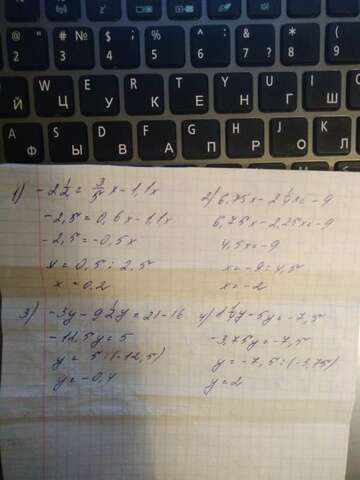 @ 2 # № 3 $ ; 4 % 5 ^ : 6 & ? 7 * 8 ( 9
Й Ц У К Е Н Г Ш
Ф Ы В А П Р О Л
1) -2 1/2 = 3/5 x - 1,1x
-2,5 = 0,6x - 1,1x
-2,5 = -0,5x
x = 0,5 : 2,5
x = 0.2
2) 6,75x - 2 1/4 x = -9
6,75x - 2,25x = -9
4,5x = -9
x = -9 : 4,5
x = -2
3) -3y - 9 1/2 y = 21 - 16
-12,5y = 5
y = 5 : (-12,5)
y = -0,4
4) 1 1/4 y - 5y = -7,5
-3,75y = -7,5
y = -7,5 : (-3,75)
y = 2